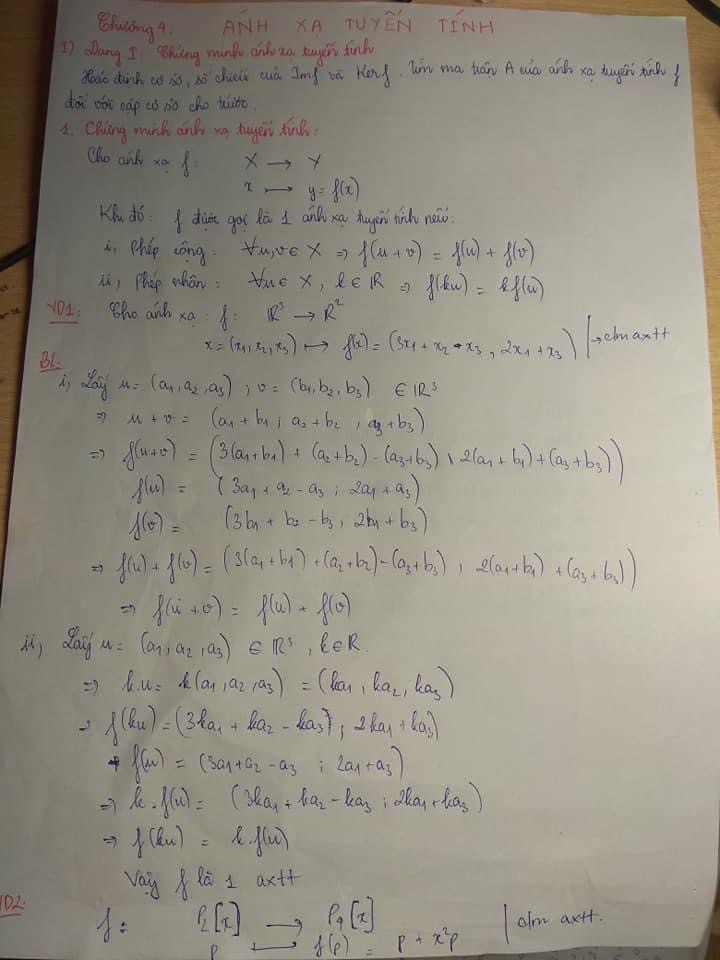 Chương 4. ÁNH XẠ TUYẾN TÍNH
I) Dạng I. Chứng minh ánh xạ tuyến tính
Xác định cơ sở, số chiều của Imf và Kerf. Tìm ma trận A của ánh xạ tuyến tính f
đối với cặp cơ sở cho trước.
1. Chứng minh ánh xạ tuyến tính:
Cho ánh xạ f: X → Y
x ↦ y = f(x)
Khi đó: f được gọi là 1 ánh xạ tuyến tính nếu:
i, Phép cộng: ∀u,v ∈ X ⇒ f(u+v) = f(u) + f(v)
ii, Phép nhân: ∀u ∈ X, k ∈ ℝ ⇒ f(ku) = kf(u)
VD1: Cho ánh xạ: f: ℝ³ → ℝ²
x = (x₁, x₂, x₃) ↦ f(x) = (3x₁ + x₂ - x₃, 2x₁ + x₃) | → c/m axtt
BL:
i, Lấy u = (a₁, a₂, a₃); v = (b₁, b₂, b₃) ∈ ℝ³
⇒ u + v = (a₁ + b₁; a₂ + b₂, a₃ + b₃)
⇒ f(u+v) = (3(a₁+b₁) + (a₂+b₂) - (a₃+b₃), 2(a₁+b₁) + (a₃+b₃))
f(u) = (3a₁ + a₂ - a₃; 2a₁ + a₃)
f(v) = (3b₁ + b₂ - b₃, 2b₁ + b₃)
⇒ f(u) + f(v) = (3(a₁+b₁) + (a₂+b₂) - (a₃+b₃), 2(a₁+b₁) + (a₃+b₃))
⇒ f(u+v) = f(u) + f(v)
ii, Lấy u = (a₁, a₂, a₃) ∈ ℝ³, k ∈ ℝ.
⇒ k.u = k(a₁, a₂, a₃) = (ka₁, ka₂, ka₃)
⇒ f(ku) = (3ka₁ + ka₂ - ka₃; 2ka₁ + ka₃)
f(u) = (3a₁ + a₂ - a₃; 2a₁ + a₃)
⇒ k.f(u) = (3ka₁ + ka₂ - ka₃; 2ka₁ + ka₃)
⇒ f(ku) = k.f(u)
Vậy f là 1 axtt
VD2: f: P₂[x] → P₄[x] | c/m axtt.
p ↦ f(p) = p + x²p